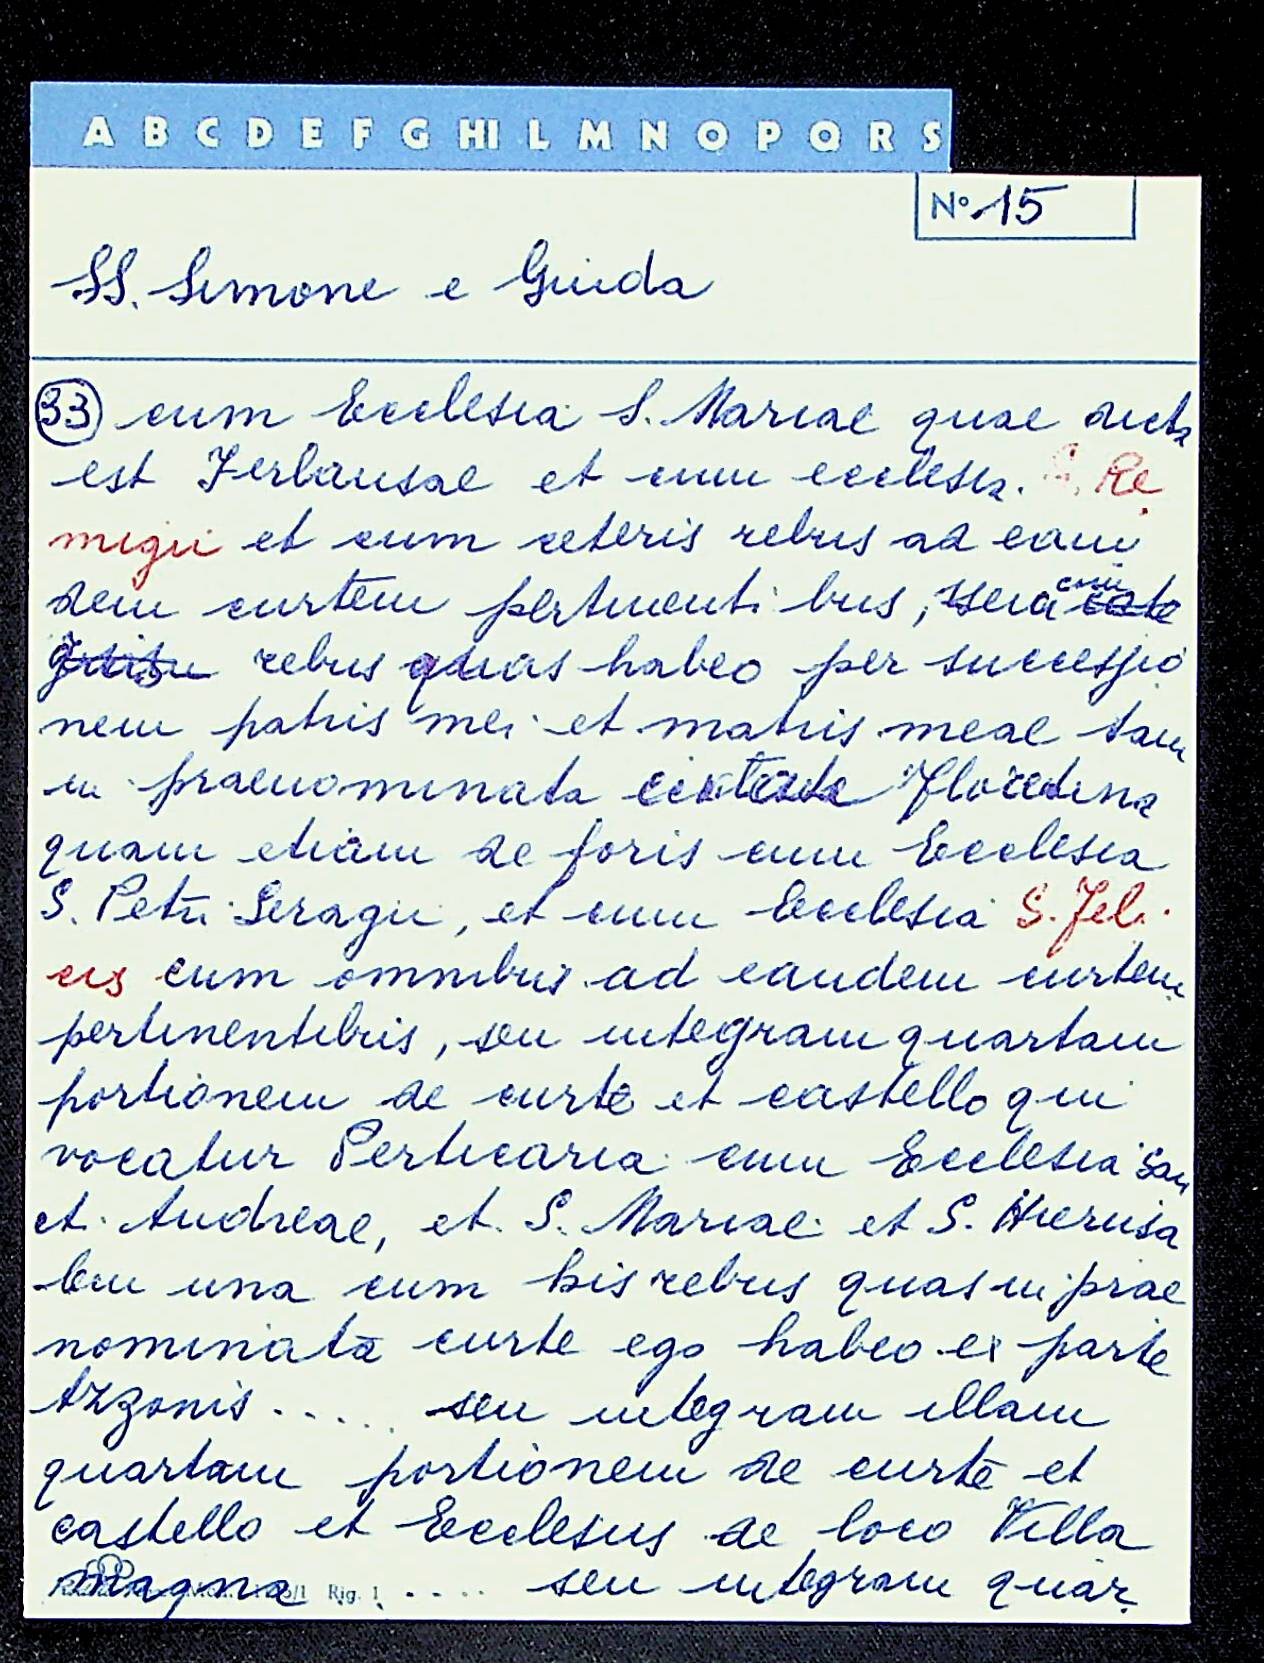 A B C D E F G HI L M N O P Q R S
N° 15
SS. Simone e Giuda
33 cum Ecclesia S. Mariae quae dicta
est Ferlausae et cum ecclesia. S. Re
migii et cum ceteris rebus ad eam
dem curtem pertinentibus, cum
rebus quas habeo per successio
nem patris mei et matris meae tam
in praenominata civitate Florentina
quam etiam de foris cum Ecclesia
S. Petri Seragii, et cum Ecclesia S. Feli
cis cum omnibus ad eandem curtem
pertinentibus, seu integram quartam
portionem de curte et castello qui
vocatur Perticaria cum Ecclesia San
ct. Andreae, et S. Mariae et S. Hierusa
lem una cum his rebus quas in prae
nominatā curte ego habeo ex parte
Azzonis ..... seu integram illam
quartam portionem de curte et
castello et Ecclesiis de loco Villa
magna .... seu integram quar
Rig. 1